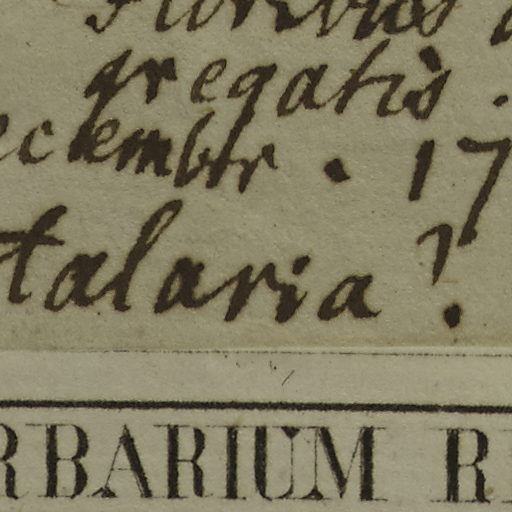 Floribus
gregatis.
ecembr. 17
talaria?.
RBARIUM R